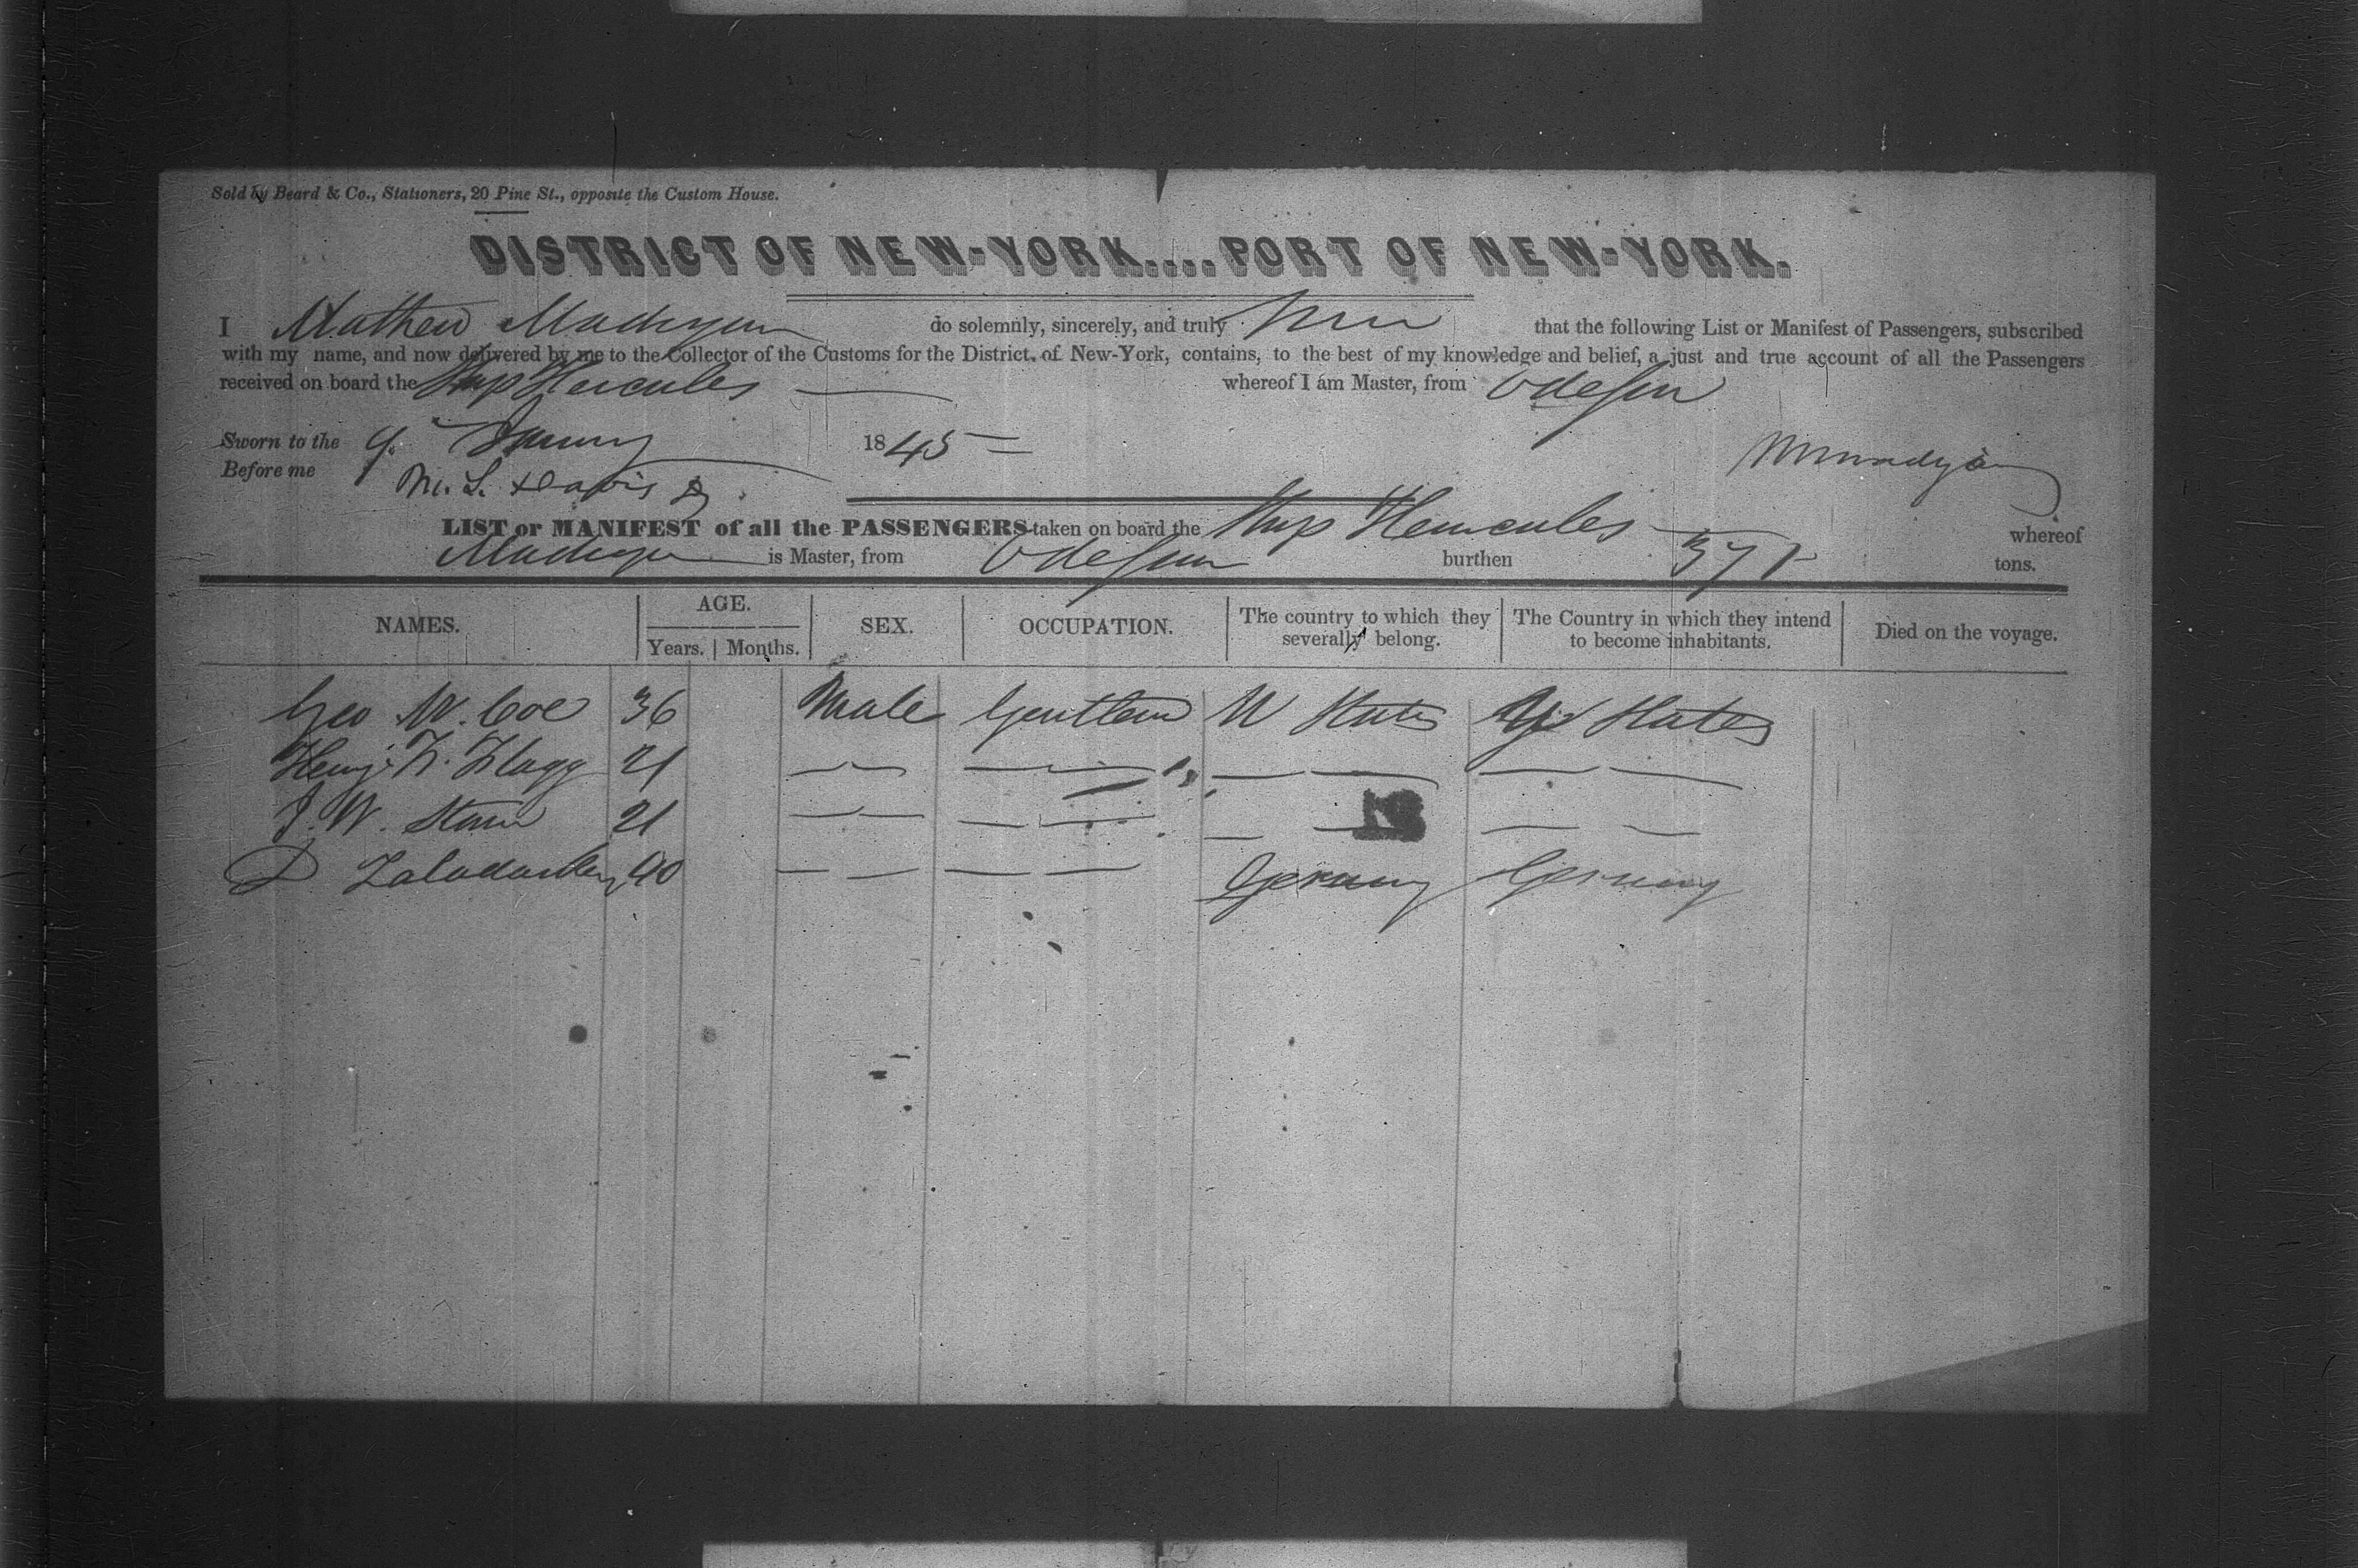 Sold by Beard & Co., Stationers, 20 Pine St., opposite the Custom House.
DISTRICT OF NEW-YORK....PORT OF NEW-YORK.
I Mathew do solemnly, sincerely, and truly that the following List or Manifest of Passengers, subscribed
with my name, and now delivered by me to the Collector of the Customs for the District, of New-York, contains, to the best of my knowledge and belief, a just and true account of all the Passengers
received on board the Ship Hercules whereof I am Master, from Odessa
Sworn to the 9. 1845
Before me M. L. Davis
LIST or MANIFEST of all the PASSENGERS taken on board the Ship Hercules whereof
is Master, from Odessa burthen 371 tons.
NAMES. AGE. Years. Months. SEX. OCCUPATION. The country to which they severally belong. The Country in which they intend to become inhabitants. Died on the voyage.
Geo W. Coe 36 Male Gentlem U States U States
Flagg 21
J. W. 21
D 40 Germany Germany